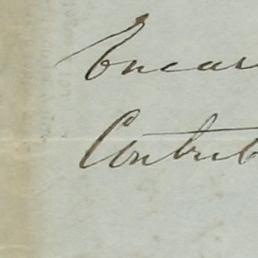 Encar
Contrib